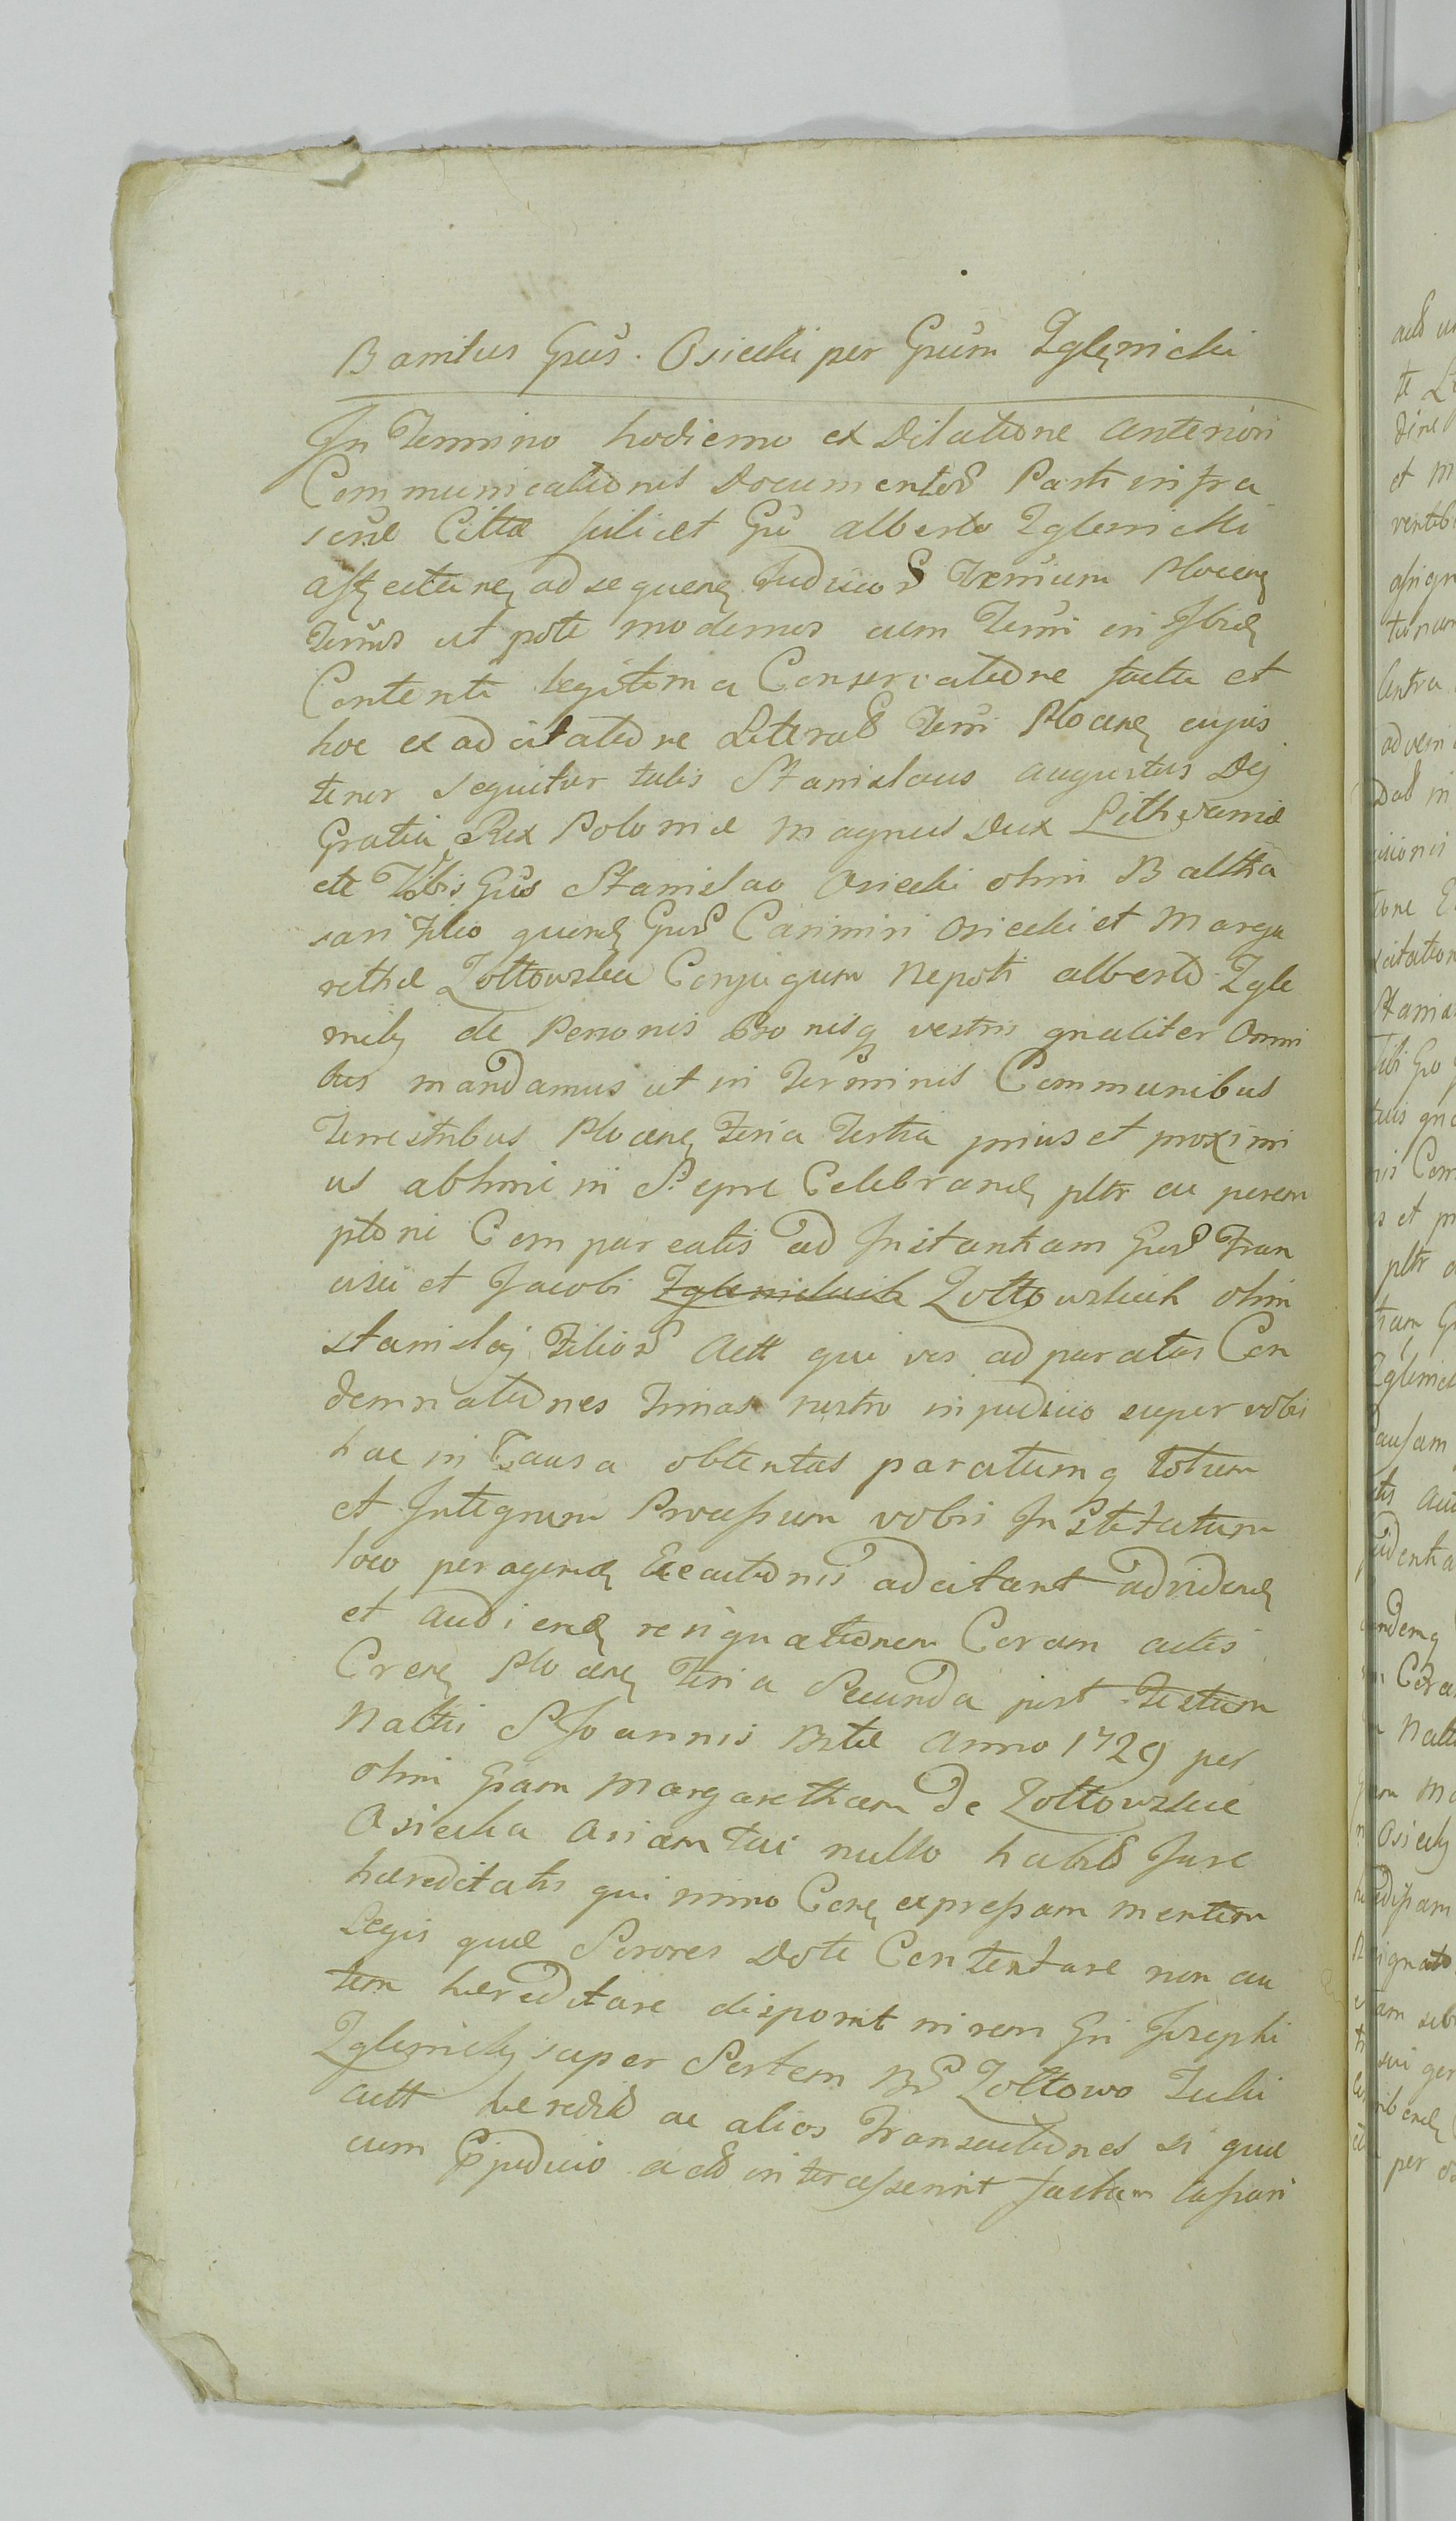 Banitus Gsus. Osiecki per Gsum Zglęnicki
In Termino hodierno ex Dilatione anteriori
Communicationis Documentor Parti infra
scrae Cittae scilicet Gso alberto Zglenicki
affectatae, ad sequen Judicior Terrium Plocen
Terminos ut pote modernos cum Termi in Ibid
Contenti legitima Conservatione facta et
hoc ex ad citatione Literali Terri Plocen cujus
tenor sequitur talis Stanislaus augustus Dej
Gratia Rex Poloniae Magnus Dux Lithvaniae
etc Vobis Gsis Stanislao Osiecki olim Baltha
sari Filio quond Gsor Casimiri Osiecki et Marga
rethae Zołtowska Conjugum Nepoti alberto Zgle
nicky de Personis Bonisq vestris gnaliter Omni
bus mandamus ut in Terminis Communibus
Terrestribus Plocen Feria Tertia prius et proximi
us abhinc in S. epne Celebrand pltr ac perem
ptorie Compareatis ad Instantiam Gsor Fran
cisci et Jacobi Zglenickich Zołtowskich olim
stanislaj Filior Actt qui vos ad paratas Con
demnationes Trinas nostro in judicio super vobis
hac in Causa obtentas paratumq totum
et Integrum Processum vobis Institutum
loco peragend Executionis adcitant ad vidend
et audiend resignationem Coram actis
Cren Plocen Feria Secunda post Festum
Nattis S Joannis Btae Anno 1729 per
olim Gsam Margaretham de Zołtowskie
Osiecka aviam tui nullo habito Jure
haereditatis qui nimo Con expressam mentem
Legis quae Sorores Dote Contentare non au
tem haereditare disponit in rem Gsi Josephi
Zglenicky super Sortem Br Zołtowo Tuchi
actt haeredit ac alios Transactiones si quae
cum Pjudicio actt intercesserint factam cassari